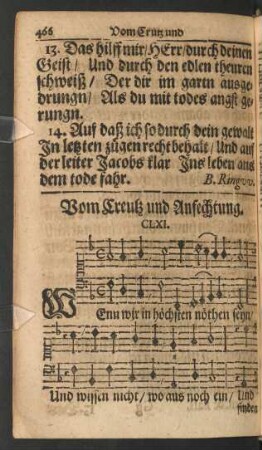 466 Vom Creutz und
13. Das hilff mir/HErr/durch deinen
Geist/ Und durch den edlen theuren
schweiß/ Der dir im gartn ausge-
drungn/ Als du mit todes angst ge-
rungn.
14. Auf daß ich so durch dein gewalt
In letzten zügen recht behalt/ Und auf
der leiter Jacobs klar Ins leben aus
dem tode fahr. B. Ringw.
Vom Creutz und Anfechtung.
CLXI.
WEnn wir in höchsten nöthen seyn/
Und wissen nicht/ wo aus noch ein/ Und
finden